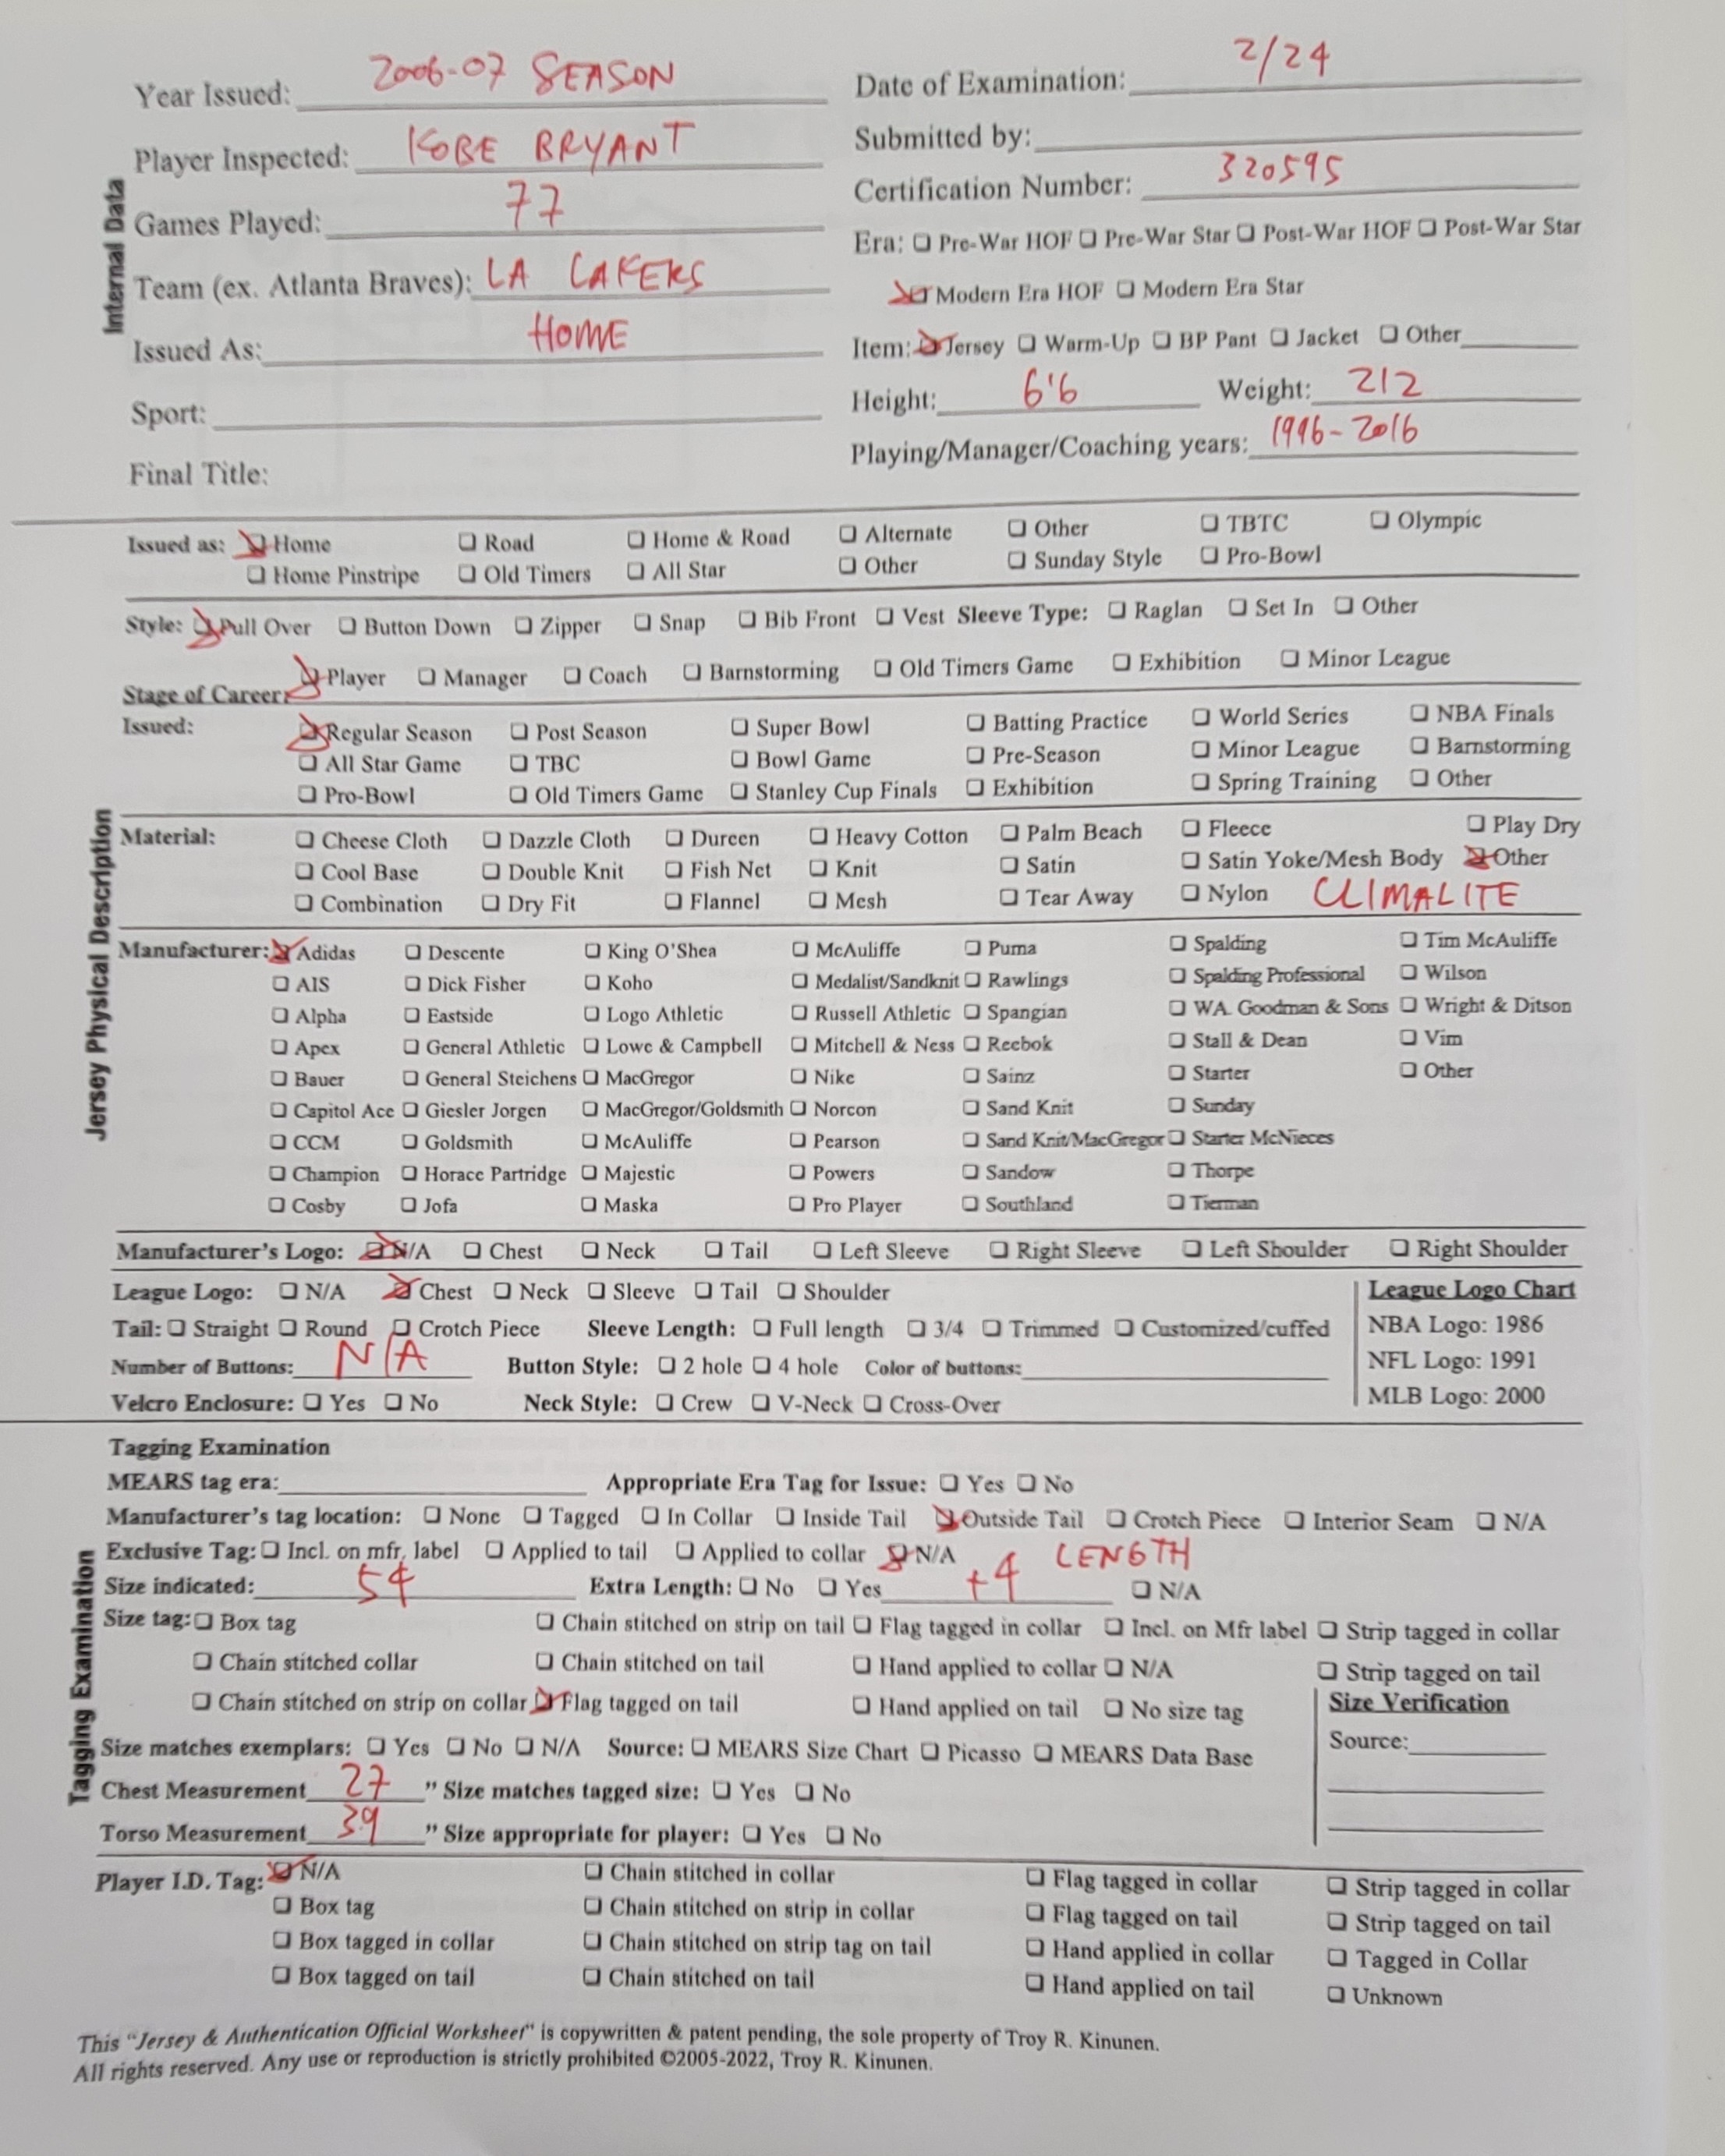 Year Issued: 2006-07 SEASON
Date of Examination: 2/24
Player Inspected: KOBE BRYANT
Submitted by:
Games Played: 77
Certification Number: 320595
Internal Data
Era: ☐ Pre-War HOF ☐ Pre-War Star ☐ Post-War HOF ☐ Post-War Star
Team (ex. Atlanta Braves): LA LAKERS
☑ Modern Era HOF ☐ Modern Era Star
Issued As: HOME
Item: ☑ Jersey ☐ Warm-Up ☐ BP Pant ☐ Jacket ☐ Other
Sport:
Height: 6'6 Weight: 212
Playing/Manager/Coaching years: 1996-2016
Final Title:
Issued as: ☑ Home ☐ Road ☐ Home & Road ☐ Alternate ☐ Other ☐ TBTC ☐ Olympic
☐ Home Pinstripe ☐ Old Timers ☐ All Star ☐ Other ☐ Sunday Style ☐ Pro-Bowl
Style: ☑ Pull Over ☐ Button Down ☐ Zipper ☐ Snap ☐ Bib Front ☐ Vest Sleeve Type: ☐ Raglan ☐ Set In ☐ Other
Stage of Career: ☑ Player ☐ Manager ☐ Coach ☐ Barnstorming ☐ Old Timers Game ☐ Exhibition ☐ Minor League
Issued: ☑ Regular Season ☐ Post Season ☐ Super Bowl ☐ Batting Practice ☐ World Series ☐ NBA Finals
☐ All Star Game ☐ TBC ☐ Bowl Game ☐ Pre-Season ☐ Minor League ☐ Barnstorming
☐ Pro-Bowl ☐ Old Timers Game ☐ Stanley Cup Finals ☐ Exhibition ☐ Spring Training ☐ Other
Jersey Physical Description
Material: ☐ Cheese Cloth ☐ Dazzle Cloth ☐ Dureen ☐ Heavy Cotton ☐ Palm Beach ☐ Fleece ☐ Play Dry
☐ Cool Base ☐ Double Knit ☐ Fish Net ☐ Knit ☐ Satin ☐ Satin Yoke/Mesh Body ☑ Other
☐ Combination ☐ Dry Fit ☐ Flannel ☐ Mesh ☐ Tear Away ☐ Nylon CLIMALITE
Manufacturer: ☑ Adidas ☐ Descente ☐ King O'Shea ☐ McAuliffe ☐ Puma ☐ Spalding ☐ Tim McAuliffe
☐ AIS ☐ Dick Fisher ☐ Koho ☐ Medalist/Sandknit ☐ Rawlings ☐ Spalding Professional ☐ Wilson
☐ Alpha ☐ Eastside ☐ Logo Athletic ☐ Russell Athletic ☐ Spangian ☐ WA. Goodman & Sons ☐ Wright & Ditson
☐ Apex ☐ General Athletic ☐ Lowe & Campbell ☐ Mitchell & Ness ☐ Reebok ☐ Stall & Dean ☐ Vim
☐ Bauer ☐ General Steichens ☐ MacGregor ☐ Nike ☐ Sainz ☐ Starter ☐ Other
☐ Capitol Ace ☐ Giesler Jorgen ☐ MacGregor/Goldsmith ☐ Norcon ☐ Sand Knit ☐ Sunday
☐ CCM ☐ Goldsmith ☐ McAuliffe ☐ Pearson ☐ Sand Knit/MacGregor ☐ Starter McNieces
☐ Champion ☐ Horace Partridge ☐ Majestic ☐ Powers ☐ Sandow ☐ Thorpe
☐ Cosby ☐ Jofa ☐ Maska ☐ Pro Player ☐ Southland ☐ Tierman
Manufacturer's Logo: ☑ N/A ☐ Chest ☐ Neck ☐ Tail ☐ Left Sleeve ☐ Right Sleeve ☐ Left Shoulder ☐ Right Shoulder
League Logo: ☐ N/A ☑ Chest ☐ Neck ☐ Sleeve ☐ Tail ☐ Shoulder
Tail: ☐ Straight ☐ Round ☐ Crotch Piece Sleeve Length: ☐ Full length ☐ 3/4 ☐ Trimmed ☐ Customized/cuffed
Number of Buttons: N/A Button Style: ☐ 2 hole ☐ 4 hole Color of buttons:
Velcro Enclosure: ☐ Yes ☐ No Neck Style: ☐ Crew ☐ V-Neck ☐ Cross-Over
League Logo Chart
NBA Logo: 1986
NFL Logo: 1991
MLB Logo: 2000
Tagging Examination
Tagging Examination
MEARS tag era: Appropriate Era Tag for Issue: ☐ Yes ☐ No
Manufacturer's tag location: ☐ None ☐ Tagged ☐ In Collar ☐ Inside Tail ☑ Outside Tail ☐ Crotch Piece ☐ Interior Seam ☐ N/A
Exclusive Tag: ☐ Incl. on mfr. label ☐ Applied to tail ☐ Applied to collar ☑ N/A
Size indicated: 54 Extra Length: ☐ No ☐ Yes +4 LENGTH ☐ N/A
Size tag: ☐ Box tag ☐ Chain stitched on strip on tail ☐ Flag tagged in collar ☐ Incl. on Mfr label ☐ Strip tagged in collar
☐ Chain stitched collar ☐ Chain stitched on tail ☐ Hand applied to collar ☐ N/A ☐ Strip tagged on tail
☐ Chain stitched on strip on collar ☑ Flag tagged on tail ☐ Hand applied on tail ☐ No size tag
Size Verification
Source:
Size matches exemplars: ☐ Yes ☐ No ☐ N/A Source: ☐ MEARS Size Chart ☐ Picasso ☐ MEARS Data Base
Chest Measurement 27 " Size matches tagged size: ☐ Yes ☐ No
Torso Measurement 39 " Size appropriate for player: ☐ Yes ☐ No
Player I.D. Tag: ☑ N/A ☐ Chain stitched in collar ☐ Flag tagged in collar ☐ Strip tagged in collar
☐ Box tag ☐ Chain stitched on strip in collar ☐ Flag tagged on tail ☐ Strip tagged on tail
☐ Box tagged in collar ☐ Chain stitched on strip tag on tail ☐ Hand applied in collar ☐ Tagged in Collar
☐ Box tagged on tail ☐ Chain stitched on tail ☐ Hand applied on tail ☐ Unknown
This "Jersey & Authentication Official Worksheet" is copywritten & patent pending, the sole property of Troy R. Kinunen.
All rights reserved. Any use or reproduction is strictly prohibited ©2005-2022, Troy R. Kinunen.